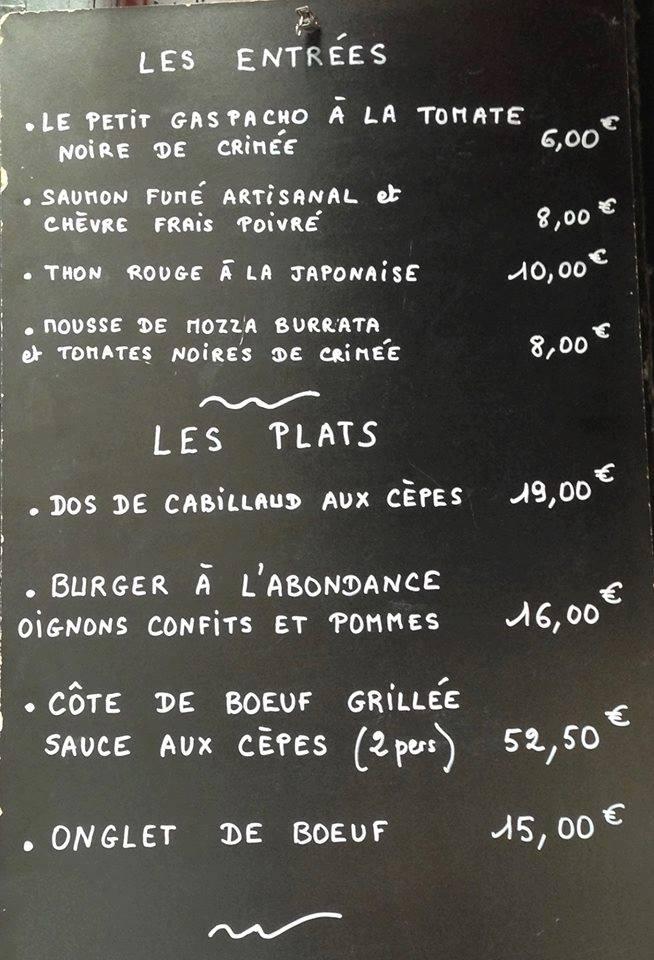 LES ENTRÉES
• LE PETIT GASPACHO À LA TOMATE
NOIRE DE CRIMÉE 6,00€
• SAUMON FUMÉ ARTISANAL et
CHÈVRE FRAIS POIVRÉ 8,00€
• THON ROUGE À LA JAPONAISE 10,00€
• MOUSSE DE MOZZA BURRATA
et TOMATES NOIRES DE CRIMÉE 8,00€
LES PLATS
• DOS DE CABILLAUD AUX CÈPES 19,00€
• BURGER À L'ABONDANCE
OIGNONS CONFITS ET POMMES 16,00€
• CÔTE DE BOEUF GRILLÉE
SAUCE AUX CÈPES (2 pers) 52,50€
• ONGLET DE BOEUF 15,00€